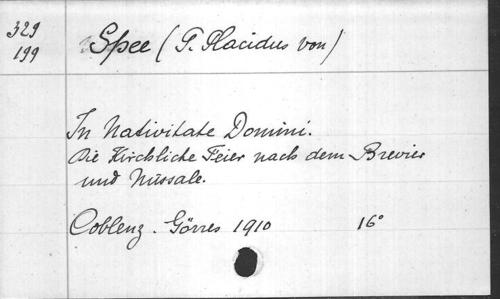 329
199
Spee (P. Placidus von)
In Nativitate Domini.
Die Kirchliche Feier nach dem Brevier
und Missale.
Coblenz. Görres 1910 16°